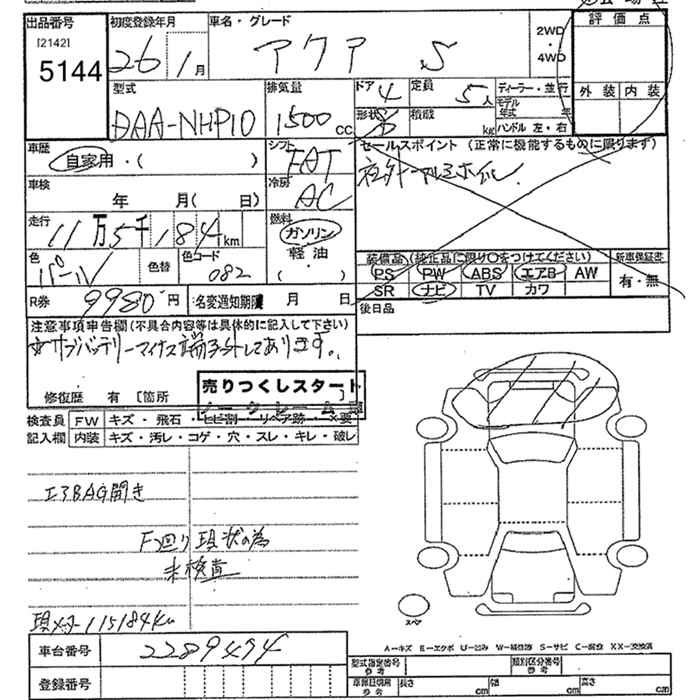 出品番号
[2142]
5144
初度登録年月
26 1月
車名・グレード
アクア S
2WD
・
4WD
評価点
外装 内装
型式
DAA-NHP10
排気量
1500cc
ドア
4
形状
定員
5人
積載
kg
ディーラー・並行
モデル年式 年
ハンドル 左・右
車歴
自家用・( )
シフト
FAT
セールスポイント (正常に機能するものに限ります)
社外アルミホイル
車検
年 月( 日)
冷房
AC
走行
11万5千184km
燃料
ガソリン
軽油
・
( )
色
パール
色替
色コード
082
装備品 (純正品に限り○をつけてください)
PS PW ABS エアB AW
SR ナビ TV カワ
新車保証書
有・無
R券
9980円
名変通知期限 月 日
後日品
注意事項申告欄(不具合内容等は具体的に記入して下さい)
サブバッテリーマイナス端子外してあります。
修復歴 有 [箇所
売りつくしスタート
ノークレーム車
検査員
記入欄
FW キズ・飛石・ヒビ割・リペア跡・×要
内装 キズ・汚レ・コゲ・穴・スレ・キレ・破レ
エアBAG開き
F廻り現状の為
未検査
現メーター115184Km
スペア
車台番号
2289494
登録番号
A-キズ E-エクボ U-凹み W-補修跡 S-サビ C-腐食 XX-交換済
型式指定番号
参考
類別区分番号
参考
長さ cm 幅 cm 高さ cm